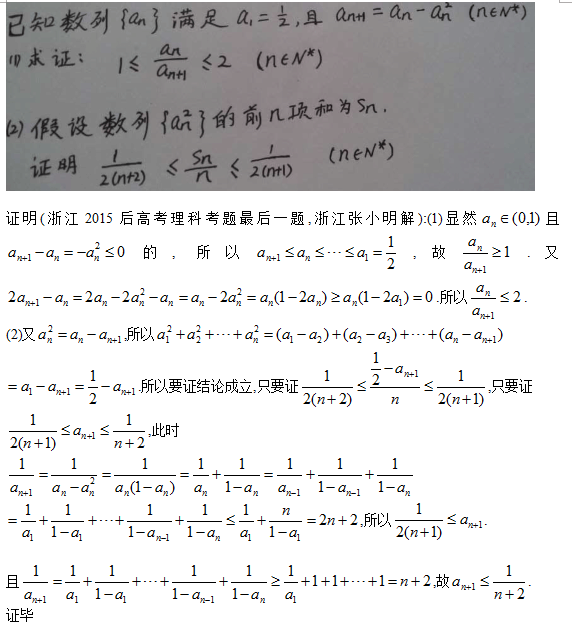 已知数列{aₙ}满足 a₁=1/2,且 aₙ₊₁=aₙ-aₙ² (n∈N*)
(1)求证: 1≤aₙ/aₙ₊₁≤2 (n∈N*)
(2)假设数列{aₙ²}的前n项和为Sₙ.
证明 1/(2(n+2)) ≤ Sₙ/n ≤ 1/(2(n+1)) (n∈N*)
证明(浙江2015后高考理科考题最后一题,浙江张小明解):(1)显然 aₙ∈(0,1) 且
aₙ₊₁-aₙ=-aₙ²≤0 的,所以 aₙ₊₁≤aₙ≤⋯≤a₁=1/2,故 aₙ/aₙ₊₁≥1.又
2aₙ₊₁-aₙ=2aₙ-2aₙ²-aₙ=aₙ-2aₙ²=aₙ(1-2aₙ)≥aₙ(1-2a₁)=0.所以 aₙ/aₙ₊₁≤2.
(2)又 aₙ²=aₙ-aₙ₊₁,所以 a₁²+a₂²+⋯+aₙ²=(a₁-a₂)+(a₂-a₃)+⋯+(aₙ-aₙ₊₁)
=a₁-aₙ₊₁=1/2-aₙ₊₁.所以要证结论成立,只要证 1/(2(n+2)) ≤ (1/2-aₙ₊₁)/n ≤ 1/(2(n+1)),只要证
1/(2(n+1)) ≤ aₙ₊₁ ≤ 1/(n+2),此时
1/aₙ₊₁=1/(aₙ-aₙ²)=1/(aₙ(1-aₙ))=1/aₙ+1/(1-aₙ)=1/aₙ₋₁+1/(1-aₙ₋₁)+1/(1-aₙ)
=1/a₁+1/(1-a₁)+⋯+1/(1-aₙ₋₁)+1/(1-aₙ)≤1/a₁+n/(1-a₁)=2n+2,所以 1/(2(n+1))≤aₙ₊₁.
且 1/aₙ₊₁=1/a₁+1/(1-a₁)+⋯+1/(1-aₙ₋₁)+1/(1-aₙ)≥1/a₁+1+1+⋯+1=n+2,故 aₙ₊₁≤1/(n+2).
证毕